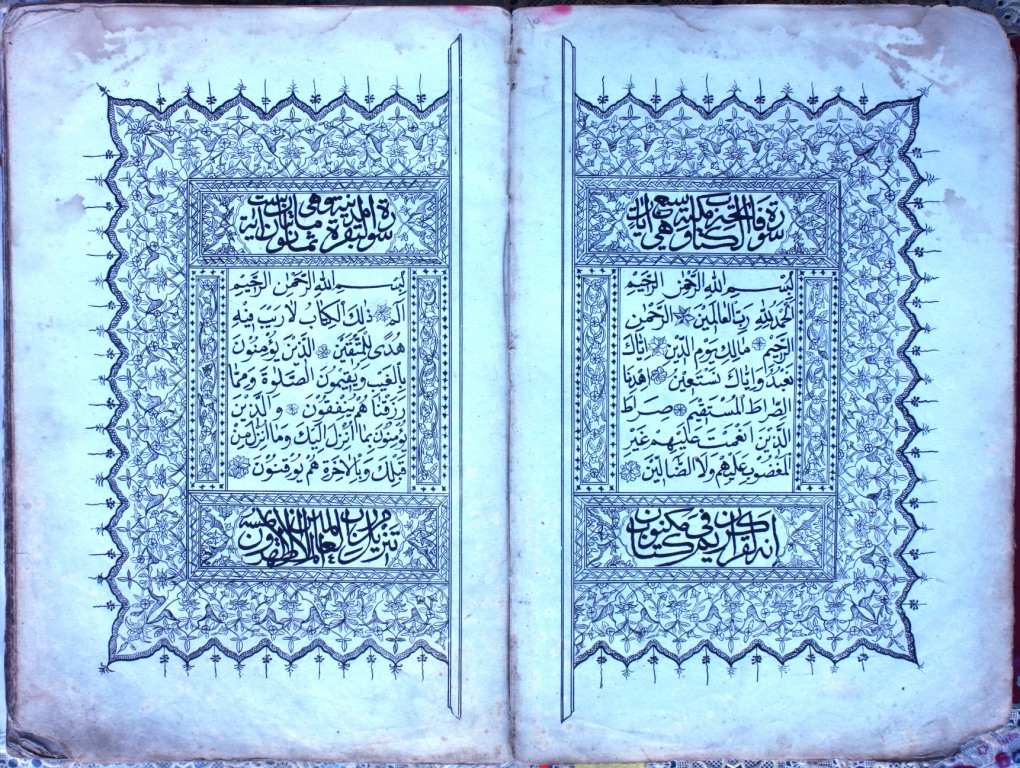 سورة فاتحة الكتاب مكية وهي سبع آيات
بِسْمِ اللهِ الرَّحْمٰنِ الرَّحِيْمِ
اَلْحَمْدُ لِلّٰهِ رَبِّ الْعَالَمِيْنَ الرَّحْمٰنِ
الرَّحِيْمِ مَالِكِ يَوْمِ الدِّيْنِ اِيَّاكَ
نَعْبُدُ وَاِيَّاكَ نَسْتَعِيْنُ اِهْدِنَا
الصِّرَاطَ الْمُسْتَقِيْمَ صِرَاطَ
الَّذِيْنَ اَنْعَمْتَ عَلَيْهِمْ غَيْرِ
الْمَغْضُوْبِ عَلَيْهِمْ وَلَا الضَّالِّيْنَ
انه لقرآن كريم في كتاب مكنون
سورة البقرة مدنية وهي مائتان وثمانون آية
بِسْمِ اللهِ الرَّحْمٰنِ الرَّحِيْمِ
الٓمٓ ذٰلِكَ الْكِتَابُ لَا رَيْبَ فِيْهِ
هُدًى لِلْمُتَّقِيْنَ الَّذِيْنَ يُؤْمِنُوْنَ
بِالْغَيْبِ وَيُقِيْمُوْنَ الصَّلٰوةَ وَمِمَّا
رَزَقْنَاهُمْ يُنْفِقُوْنَ وَالَّذِيْنَ
يُؤْمِنُوْنَ بِمَا اُنْزِلَ اِلَيْكَ وَمَا اُنْزِلَ مِنْ
قَبْلِكَ وَبِالْاٰخِرَةِ هُمْ يُوْقِنُوْنَ
لا يمسه الا المطهرون تنزيل من رب العالمين